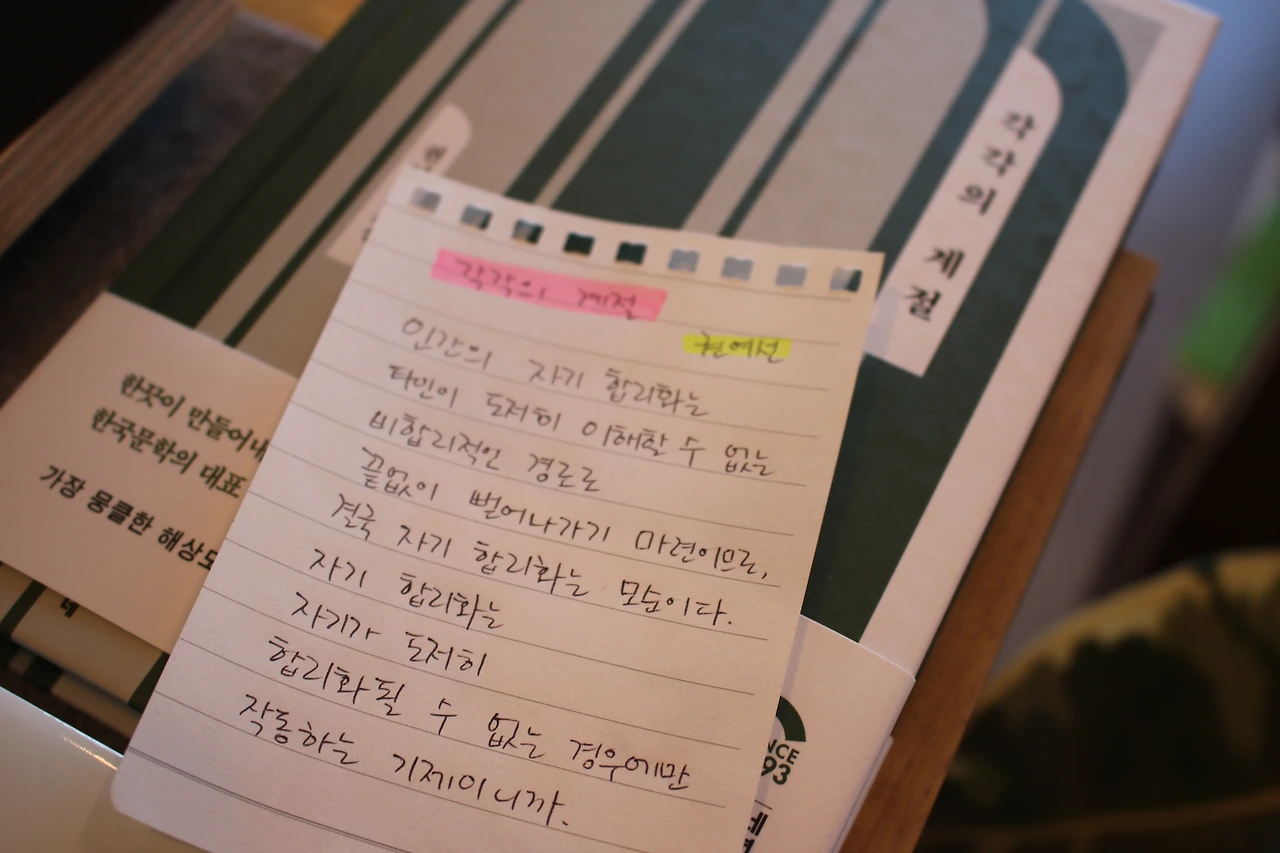 각각의 계절
각각의 계절
권여선
인간의 자기 합리화는
타인이 도저히 이해할 수 없는
비합리적인 경로로
끝없이 뻗어나가기 마련이므로,
결국 자기 합리화는 모순이다.
자기 합리화는
자기가 도저히
합리화될 수 없는 경우에만
작동하는 기제이니까.
한끗이 만들어내
한국문학의 대표
가장 뭉클한 해상도
NCE
93
네